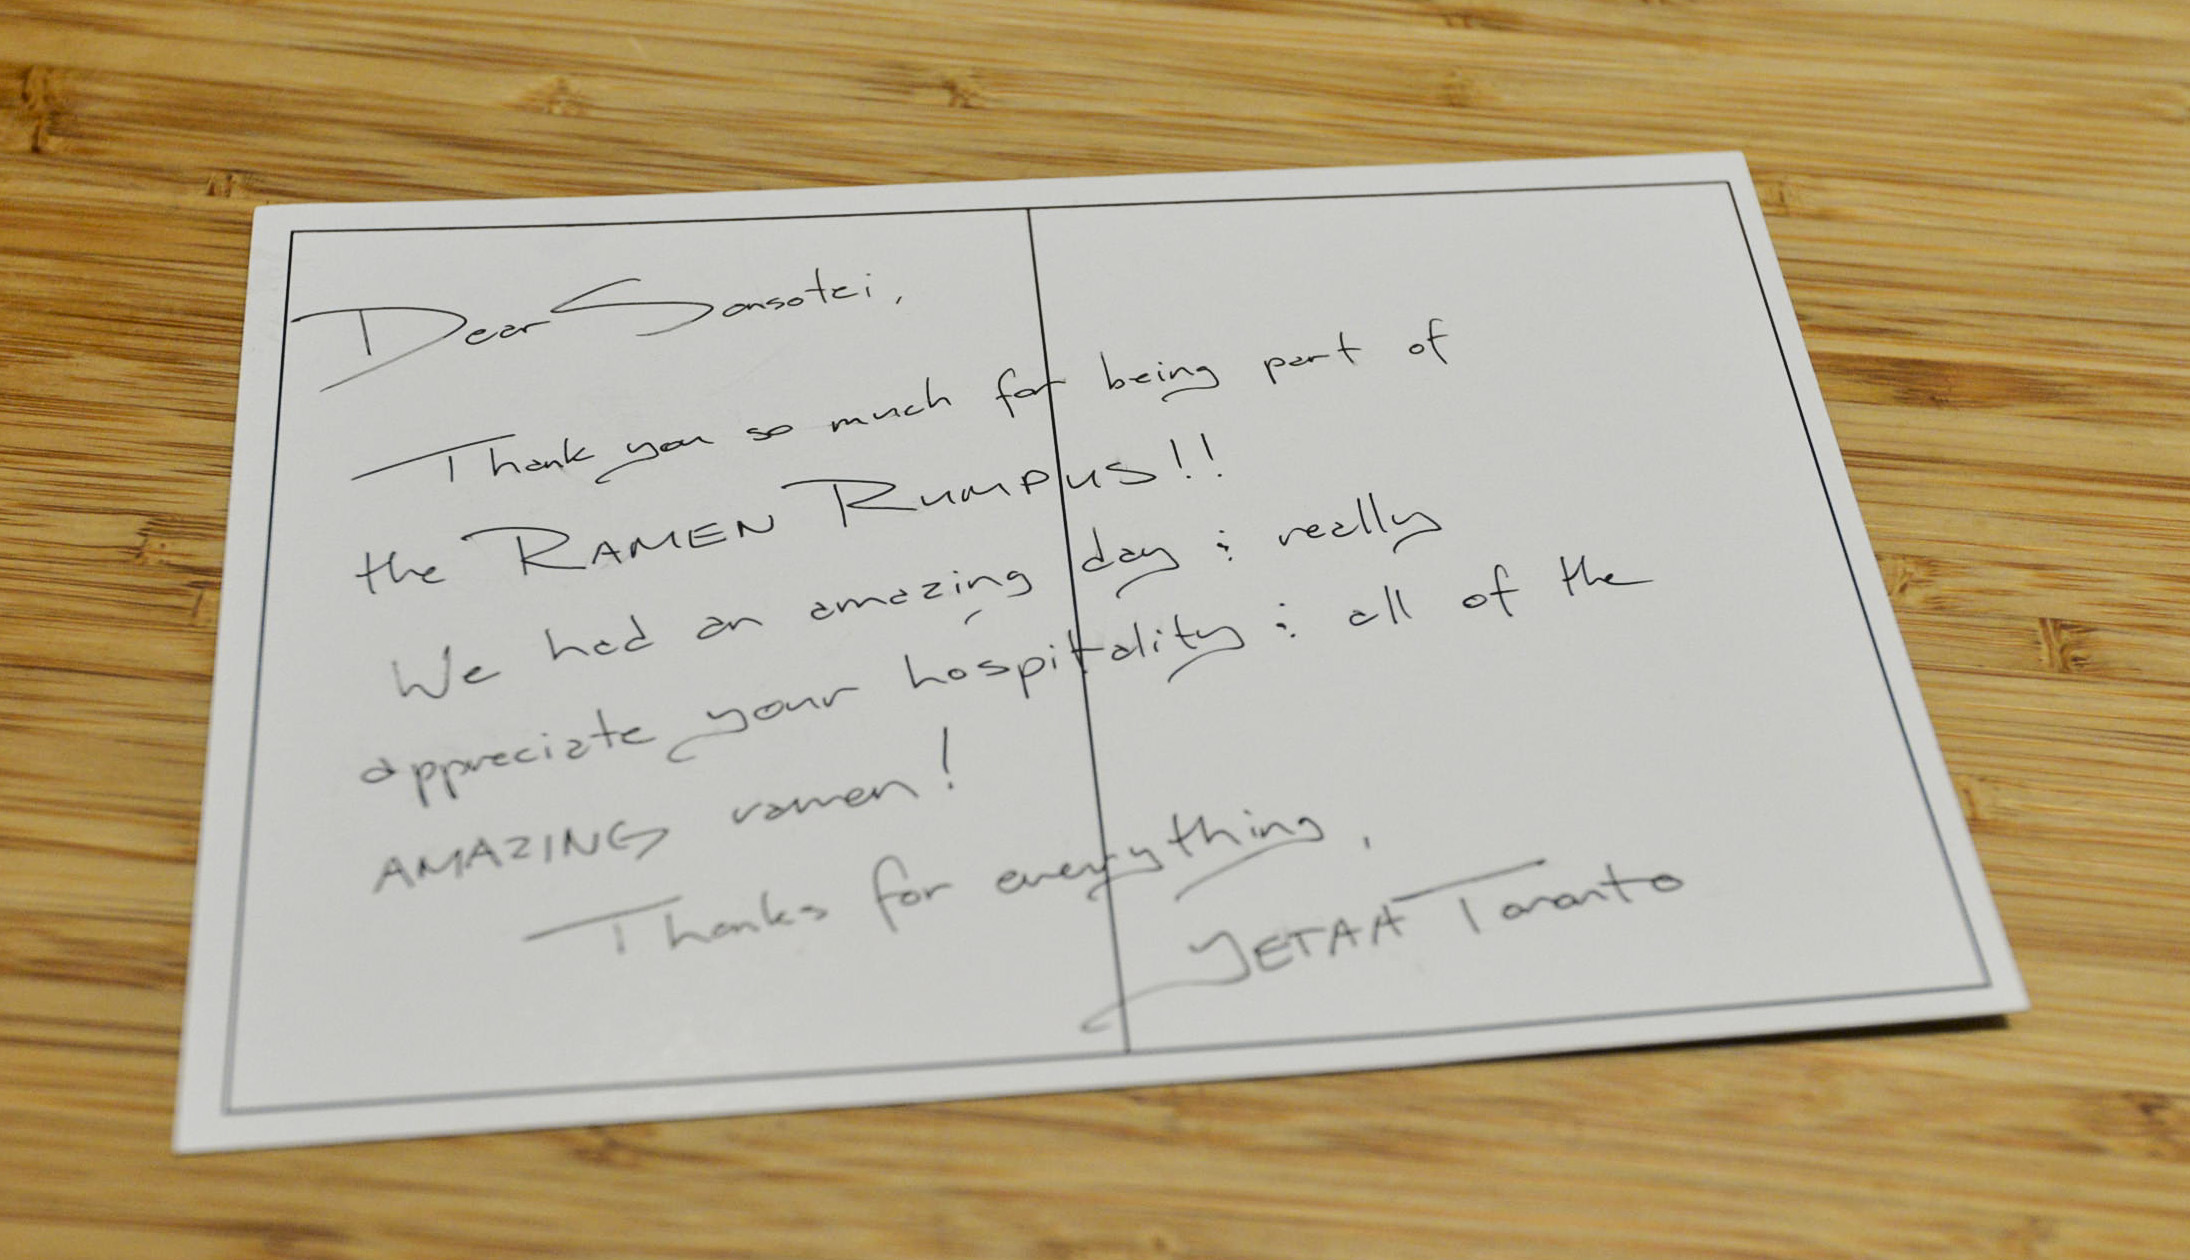 Dear Sansotei,
Thank you so much for being part of
the RAMEN RUMPUS!!
We had an amazing day & really
appreciate your hospitality & all of the
AMAZING ramen!
Thanks for everything,
JETAA Toronto